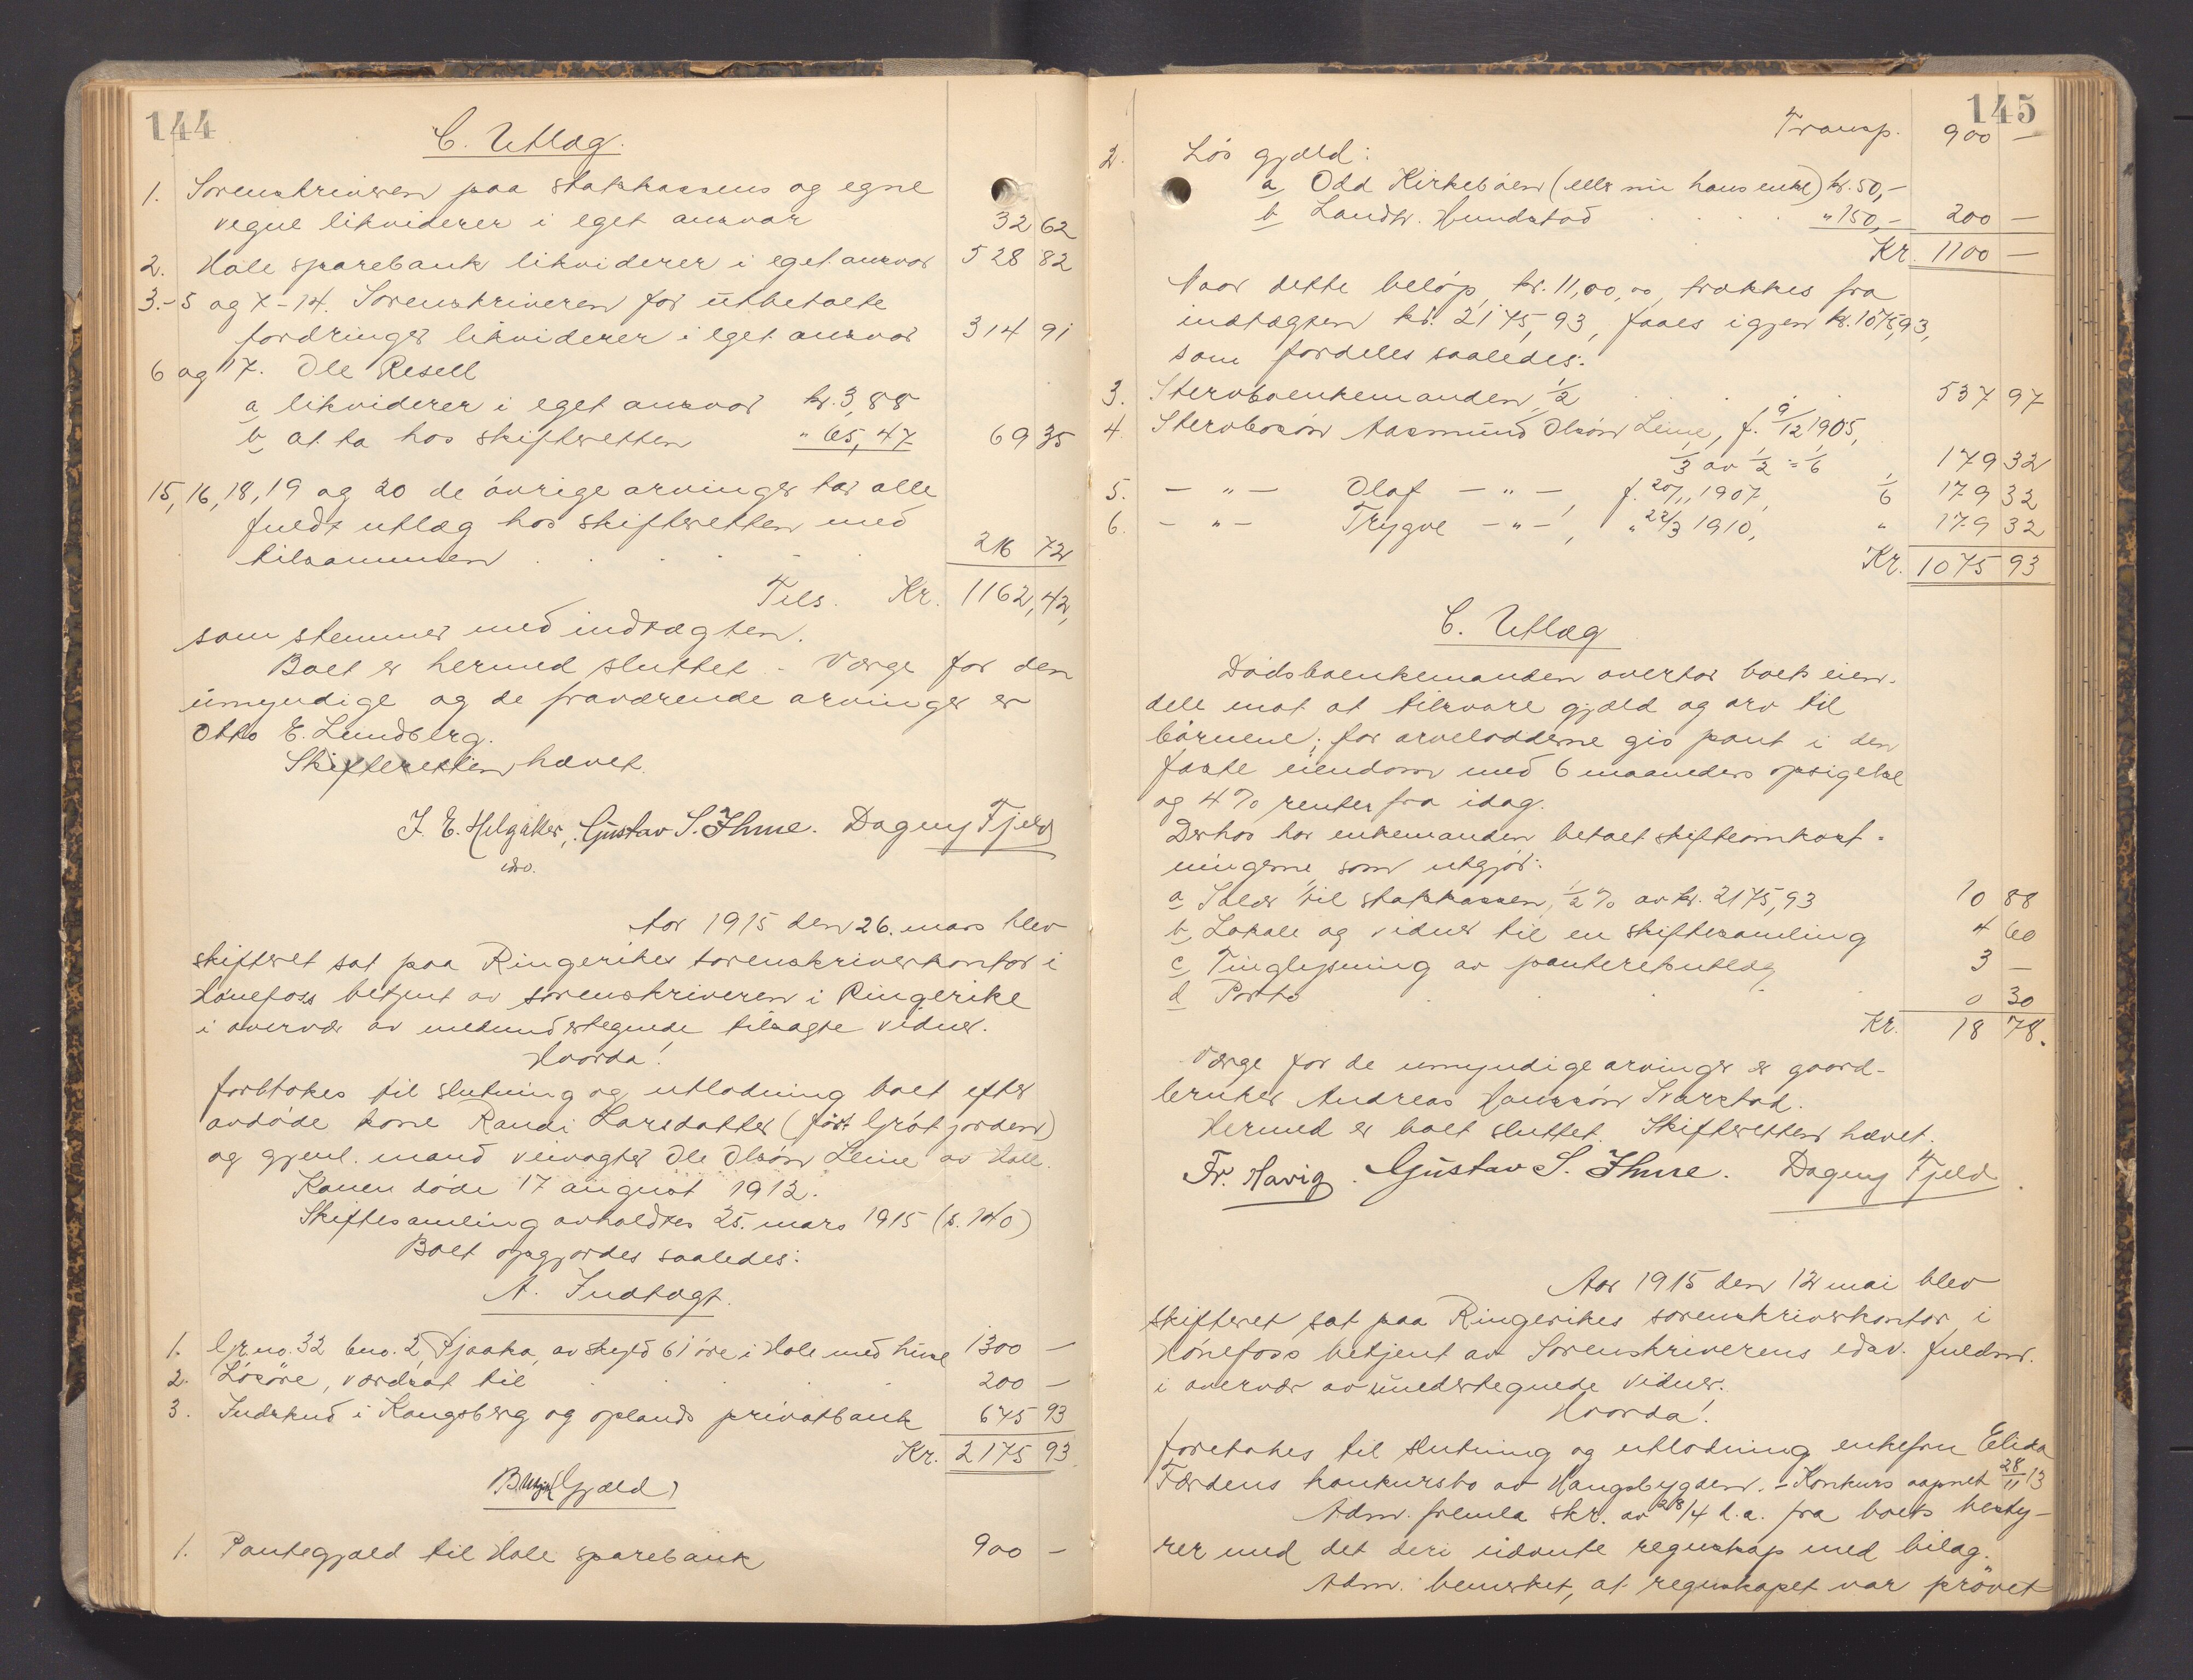 144
C. Utlæg.
1. Sorenskriveren paa statskassens og egne
vegne likviderer i eget ansvar 32 62
2. Hole sparebank likviderer i eget ansvar 528 82
3.-5 og 7-14. Sorenskriveren for utbetalte
fordringer likviderer i eget ansvar 314 91
6 og 17. Ole Resell
a, likviderer i eget ansvar kr. 3,88
b at ta hos skifteretten " 65,47 69 35
15, 16, 18, 19 og 20 de øvrige arvinger tar alle
fuldt utlæg hos skifteretten med
tilsammen 216 72
Tils. Kr. 1162,42,
som stemmer med indtægten.
Boet er hermed sluttet - Værge for den
umyndige og de fraværende arvinger er
Otto E. Lundberg.
Skifteretten hævet.
J. E. Helgaker, Gustav S. Ihme. Dagny Fjeld
edsv.
Aar 1915 den 26. mars blev
skifteret sat paa Ringerikes sorenskriverkontor i
Hönefoss betjent av sorenskriveren i Ringerike
i overvær av medundertegnede tilsagte vidner.
Hvorda!
foretokes til slutning og utlodning boet efter
avdöde kone Randi Larsdatter (født Grøtjorden)
og gjenl. mand veivogter Ole Olsön Leine av Hole.
Konen döde 17 august 1912.
Skiftesamling avholdtes 25. mars 1915 (s. 140)
Boet opgjordes saaledes:
A. Indtægt.
1. Gr.no. 32 bno. 2, Pjaaka, av skyld 61 øre i Hole med huse 1300 —
2. Lösöre, værdsat til 200 —
3. Indskud i Kongsberg og oplands privatbank 675 93
Kr. 2175 93.
B. Utgift (Gjæld)
1. Pantegjæld til Hole sparebank 900 —
145
Transp. 900 —
2. Lös gjæld:
a, Odd Kirkebøen (eller nu hans enke) kr. 50,-
b Landh. Hundstad " 150,- 200 —
Kr. 1100 —
Naar dette beløp, kr. 11,00,00, trækkes fra
indtægten kr. 2175,93, faaes igjen kr. 1075,93,
som fordeles saaledes:
3. Stervboenkemanden 1/2 537 97
4. Stervbosön Aasmund Olsön Leine, f. 9/12 1905,
1/3 av 1/2 = 1/6 179 32
5. — " — Olaf — " —, f. 20/11 1907, 1/6 179 32
6. — " — Trygve — " —, " 22/3 1910, " 179 32
Kr. 1075 93
C. Utlæg
Dødsboenkemanden overtar boets eien-
dele mot at tilsvare gjæld og arv til
børnene; for arvelodderne gis pant i den
faste eiendom med 6 maaneders opsigelse
og 4 % renter fra idag.
Derhos har enkemanden betalt skifteomkost-
ningerne, som utgjør:
a Skat til statskassen, 1/2 % av kr. 2175,93 10 88
b, Lokale og vidner til en skiftesamling 4 60
c, Tinglysning av panteretsutlæg 3 —
d Porto 0 30
Kr. 18 78.
Værge for de umyndige arvinger er gaard-
bruker Andreas Hanssön Svarstad.
Hermed er boet sluttet. Skifteretten hævet.
Fr. Havig. Gustav S. Ihme. Dagny Fjeld
Aar 1915 den 12 mai blev
skifteret sat paa Ringerikes sorenskriverkontor i
Hönefoss betjent av Sorenskriverens edsv. fuldm.
i overvær av undertegnede vidner.
Hvorda!
foretokes til slutning og utlodning enkefru Elida
Færdens konkursbo av Haugsbygden. - Konkurs aapnet 28/11 13
Adm. fremla skr. av 28/4 d.a. fra boets besty-
rer med det deri nævnte regnskap med bilag.
Adm. bemerket, at regnskapet var prövet